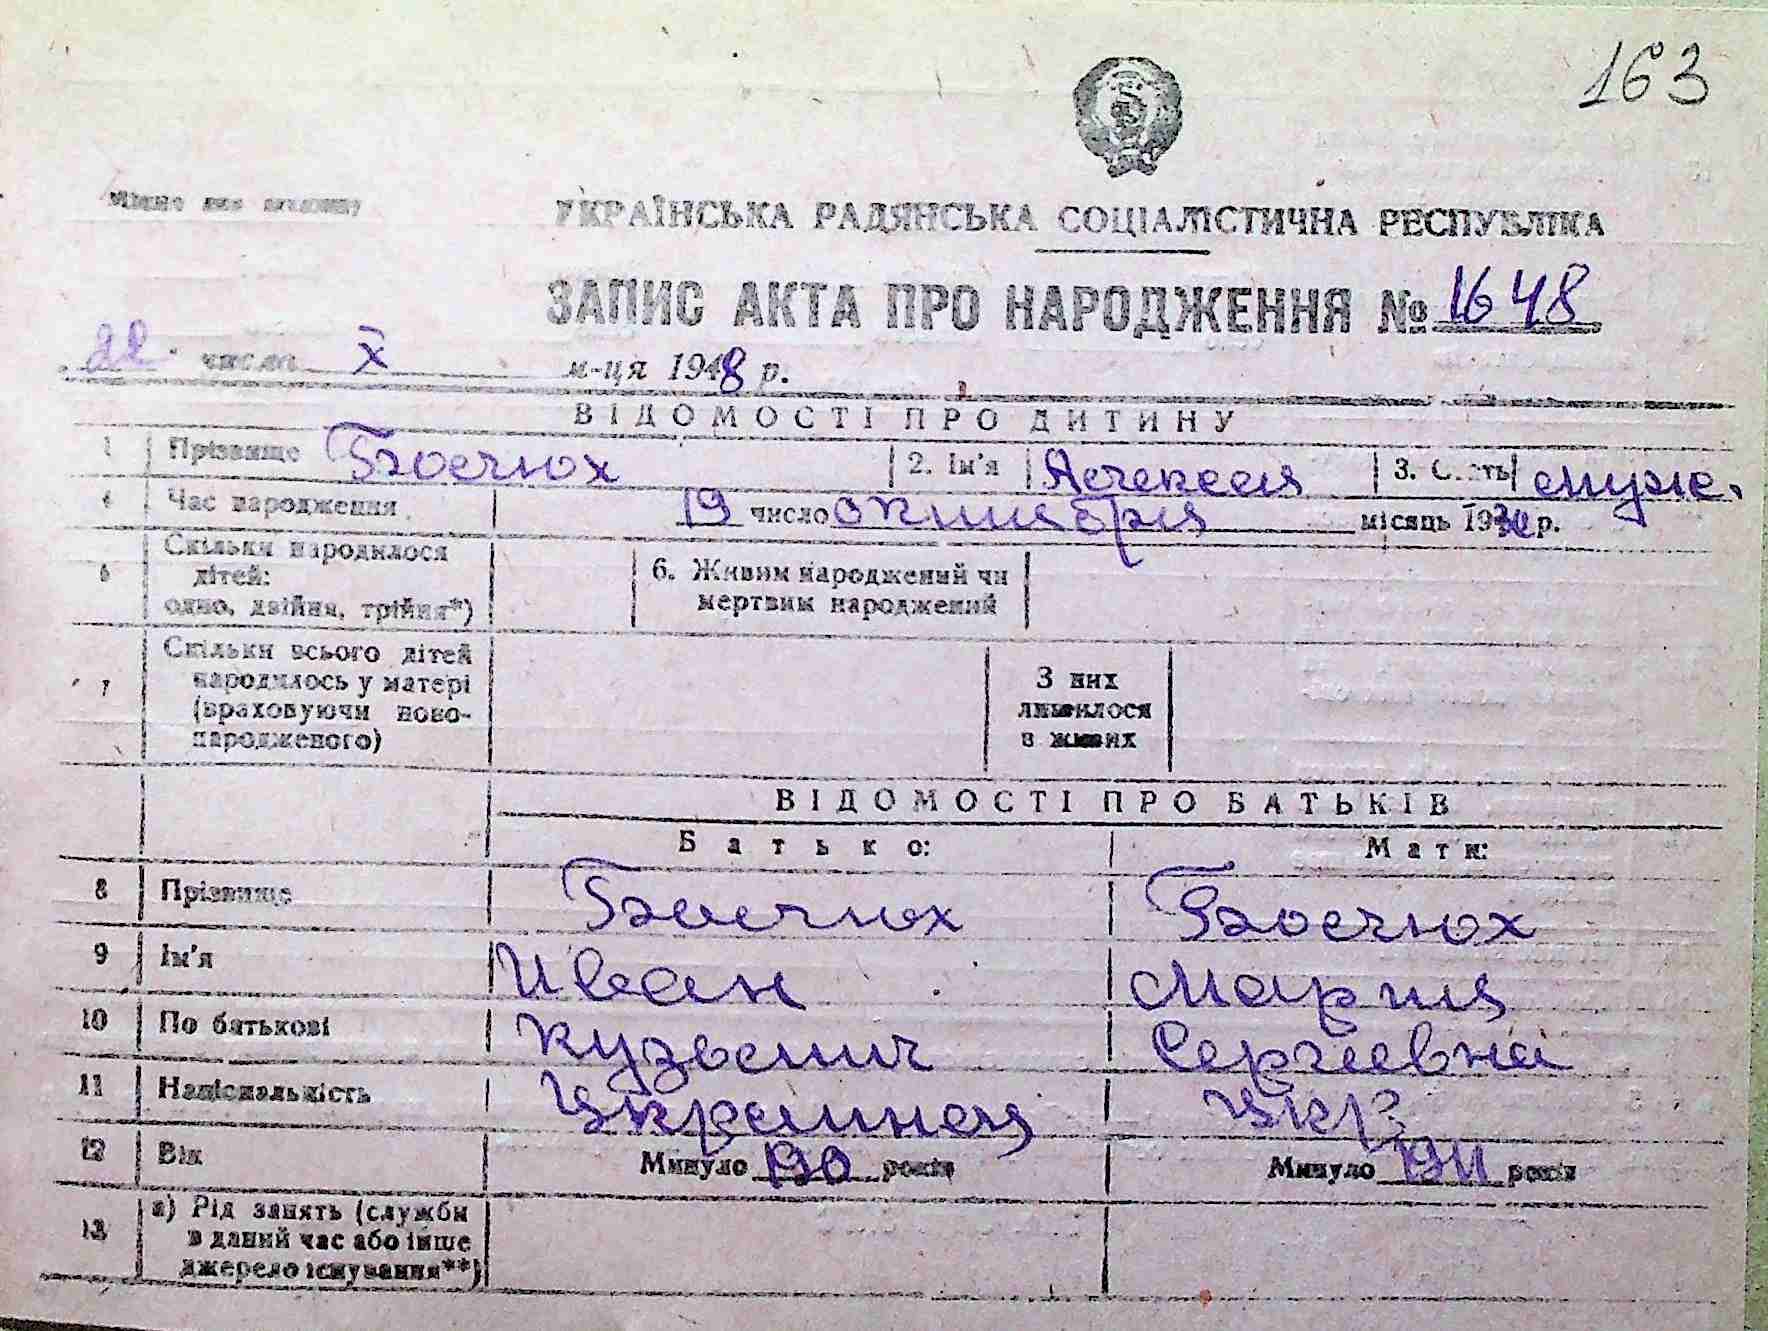 163
УКРАЇНСЬКА РАДЯНСЬКА СОЦІАЛІСТИЧНА РЕСПУБЛІКА
ЗАПИС АКТА ПРО НАРОДЖЕННЯ № 1648
22 число X м-ця 1948 р.
ВІДОМОСТІ ПРО ДИТИНУ
1 Прізвище 2. Ім'я Алексей 3. Стать муж.
4 Час народження 19 число октября місяць 19 р.
5 Скільки народилося дітей: одно, двійня, трійня*) 6. Живим народжений чи мертвим народжений
7 Скільки всього дітей народилось у матері (враховуючи новонародженого) З них лишилося в живих
ВІДОМОСТІ ПРО БАТЬКІВ
Батько: Мати:
8 Прізвище
9 Ім'я Иван Мария
10 По батькові Кузьмич Сергеевна
11 Національність Украинец Укр
12 Вік Минуло років Минуло 1911 років
13 а) Рід занять (служби в даний час або інше джерело існування**)